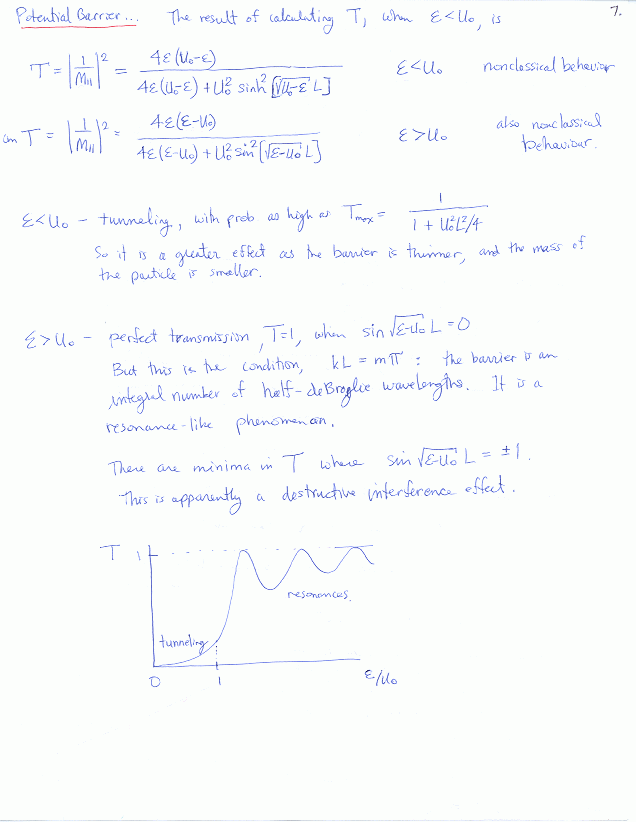 Potential Barrier... The result of calculating T, when ε<U₀, is 7.
T = |1/M₁₁|² = 4ε(U₀-ε) / 4ε(U₀-ε) + U₀² sinh²[√U₀-ε L] ε<U₀ nonclassical behavior
T = |1/M₁₁|² = 4ε(ε-U₀) / 4ε(ε-U₀) + U₀² sin²[√ε-U₀ L] ε>U₀ also nonclassical
behaviour.
ε<U₀ - tunneling, with prob as high as Tmax = 1 / 1 + U₀²L²/4
So it is a greater effect as the barrier is thinner, and the mass of
the particle is smaller.
ε>U₀ - perfect transmission, T=1, when sin √ε-U₀ L = 0
But this is the condition, kL = mπ : the barrier is an
integral number of half-deBroglie wavelengths. It is a
resonance-like phenomenon.
There are minima in T where sin √ε-U₀ L = ±1.
This is apparently a destructive interference effect.
T 1
resonances.
tunneling
0 1 ε/U₀